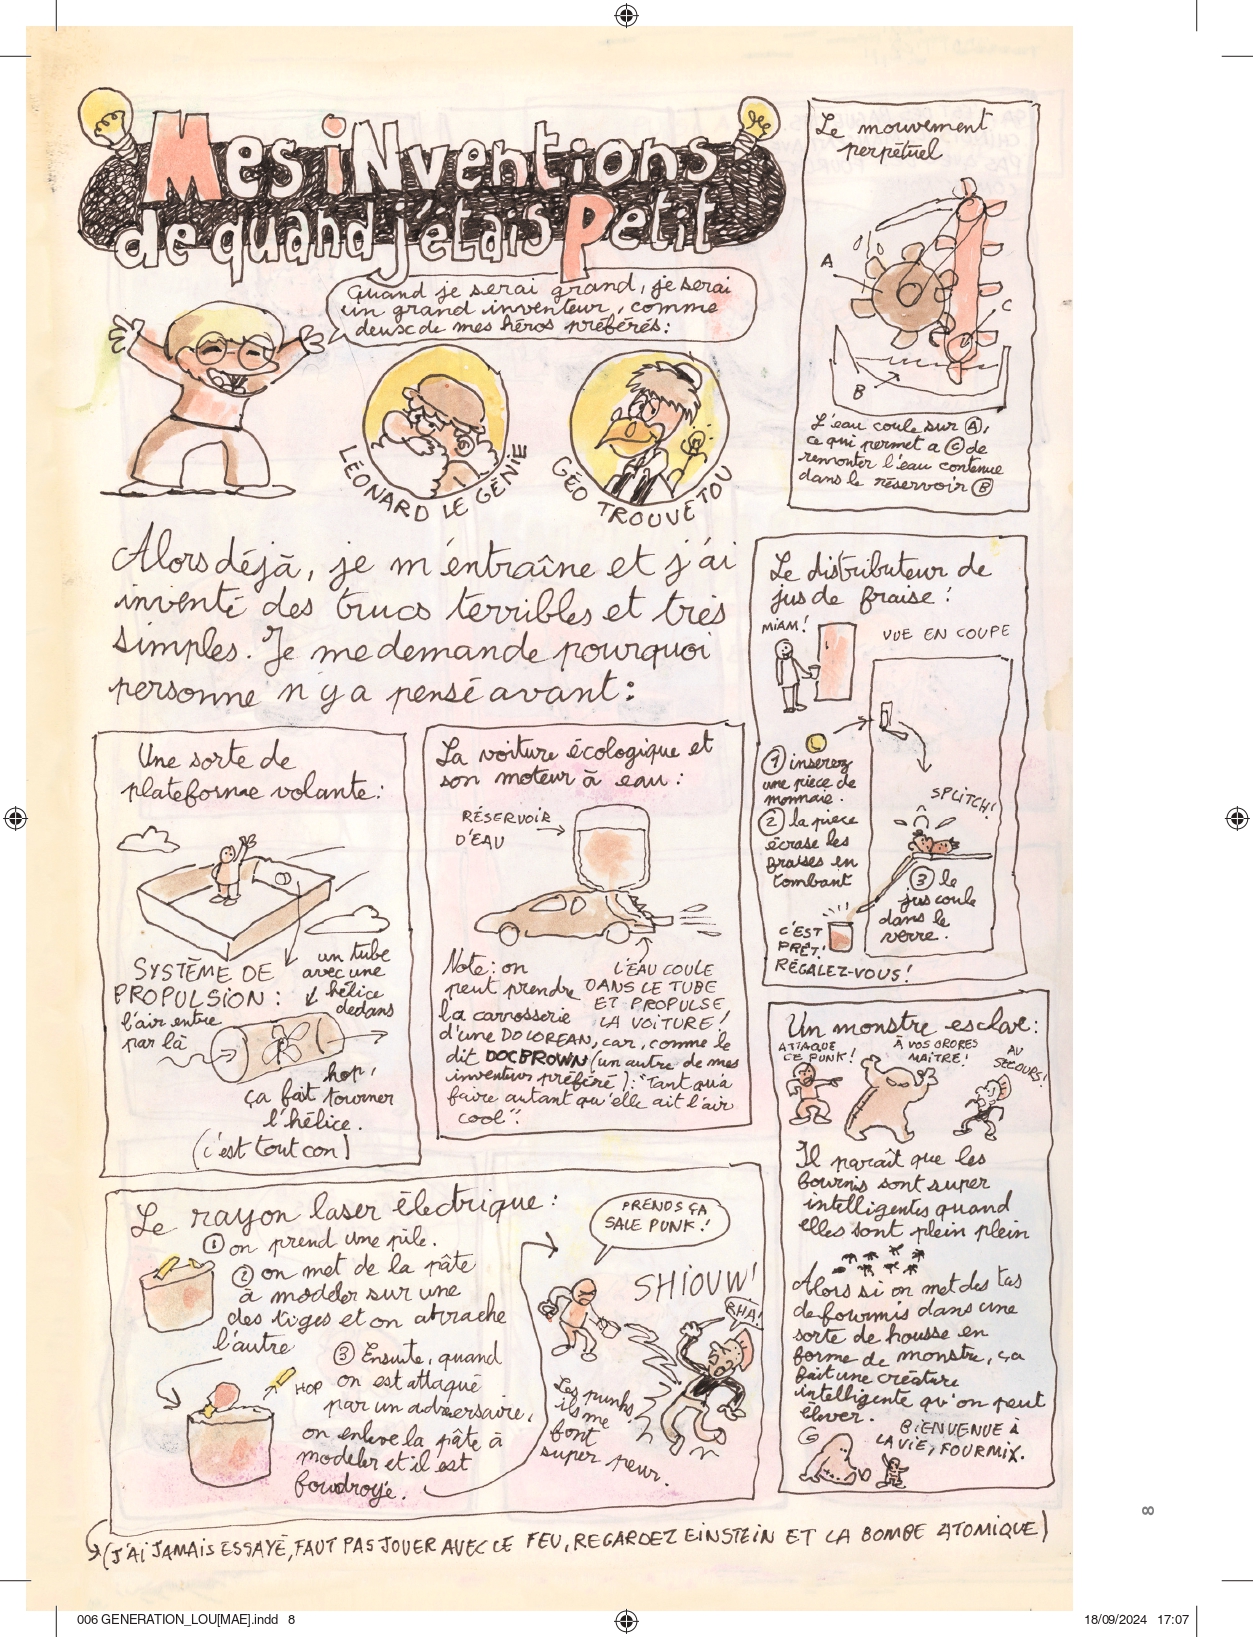 Mes inventions
de quand j'étais petit
Quand je serai grand, je serai
un grand inventeur, comme
deux de mes héros préférés :
LÉONARD LE GÉNIE
GÉO TROUVETOU
Le mouvement
perpétuel
A
C
B
L'eau coule sur A,
ce qui permet a C de
remonter l'eau contenue
dans le réservoir B
Alors déjà, je m'entraîne et j'ai
inventé des trucs terribles et très
simples. Je me demande pourquoi
personne n'y a pensé avant :
Le distributeur de
jus de fraise :
MIAM !
VUE EN COUPE
1 inserez
une pièce de
monnaie.
2 la pièce
écrase les
fraises en
tombant
SPLITCH !
3 le
jus coule
dans le
verre.
C'EST
PRÊT !
RÉGALEZ-VOUS !
Une sorte de
plateforme volante :
SYSTÈME DE
PROPULSION :
un tube
avec une
hélice
dedans
l'air entre
par là
hop,
ça fait tourner
l'hélice.
(c'est tout con)
La voiture écologique et
son moteur à eau :
RÉSERVOIR
D'EAU
L'EAU COULE
DANS LE TUBE
ET PROPULSE
LA VOITURE !
Note : on
peut prendre
la carrosserie
d'une DOLOREAN, car, comme le
dit DOC BROWN (un autre de mes
inventeurs préféré) : "Tant qu'à
faire autant qu'elle ait l'air
cool".
Un monstre esclave :
ATTAQUE
CE PUNK !
À VOS ORDRES
MAÎTRE !
AU
SECOURS !
Il paraît que les
fourmis sont super
intelligentes quand
elles sont plein plein
Alors si on met des tas
de fourmis dans une
sorte de housse en
forme de monstre, ça
fait une créature
intelligente qu'on peut
élever.
BIENVENUE À
LA VIE, FOURMIX.
Le rayon laser électrique :
1 on prend une pile.
2 on met de la pâte
à modeler sur une
des tiges et on arrache
l'autre
HOP
3 Ensuite, quand
on est attaqué
par un adversaire,
on enlève la pâte à
modeler et il est
foudroyé.
PRENDS ÇA
SALE PUNK !
SHIOUW !
RHA !
Les punks,
ils me
font
super peur.
(J'AI JAMAIS ESSAYÉ, FAUT PAS JOUER AVEC LE FEU, REGARDEZ EINSTEIN ET LA BOMBE ATOMIQUE)
8
006 GENERATION_LOU[MAE].indd 8
18/09/2024 17:07